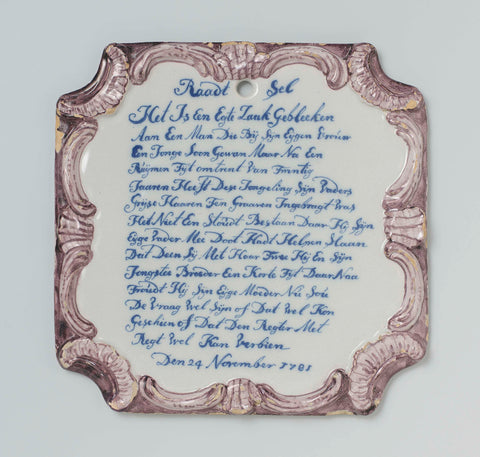 Raadt Sel
Het Is Een Egte Zaak Gebleeken
Aan Een Man Die Bij Syn Eygen Vrouw
Een Jonge Soon Gewan Maar Na Een
Ruymen Tyt omtrent Van Twintig
Jaaren Heeft Dese Jongeling Syn Vaders
Gryse Haaren Ten Graaven Ingebragt Was
Het Niet Een Stoudt Bestaan Daar Hy Syn
Eyge Vader Mee Doot Hadt Helpen Slaan
Dat Deen Sy Met Haar Twee Hy En Syn
Jongste Broeder Een Korte Tyt Daar Naa
Troudt Hy Syn Eyge Moeder Nu Sou
De Vraag Wel Syn of Dat Wel Kon
Geschien of Dat Den Regter Met
Regt Wel Kan Verbien
Den 24 November 1781